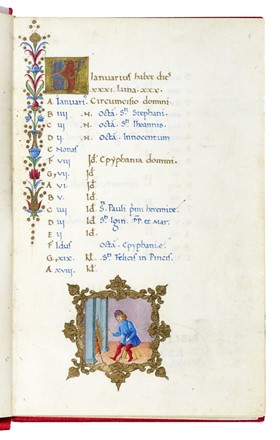 Ianuarius habet dies
XXXI. Luna. XXX.
A Ianuarii. Circumcisio domini.
B IIII .N. Octa. Sti Stephani.
C III .N. Octa. Sti Iohannis.
D II .N. Octa. Innocentum
E Nonas
F VIII Id. Epyphania domini.
G VII Id.
A VI Id.
B V. Id.
C IIII Id. S. Pauli primi heremite.
D III Id. Sti
E II Id.
F Idus Octa. Epyphanie.
G XIX. kl. Sti Felicis in Pincis.
A XVIII. kl.